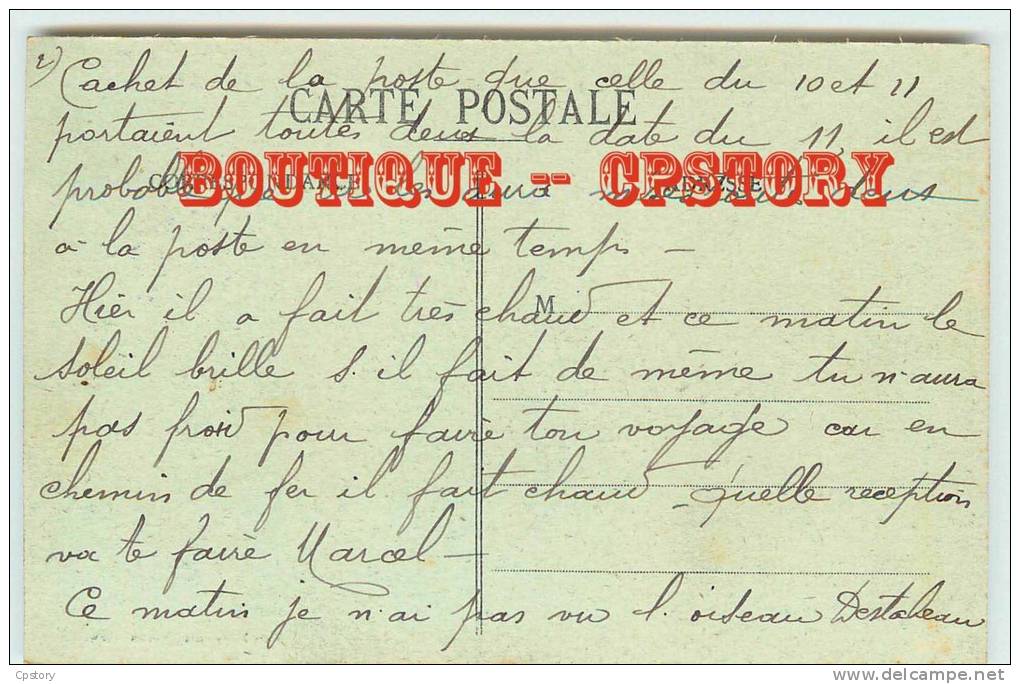 2) Cachet de la poste que celle du 10 et 11
CARTE POSTALE
portaient toutes deux la date du 11, il est
BOUTIQUE -- CPSTORY
aura
à la poste en même temps —
Hier il a fait très chaud et ce matin le
M
soleil brille s. il fait de même tu n'aura
pas froid pour faire ton voyage car en
chemin de fer il fait chaud — quelle reception
va te faire Marcel —
Ce matin je n'ai pas vu l'oiseau
Cpstory
delcampe.net